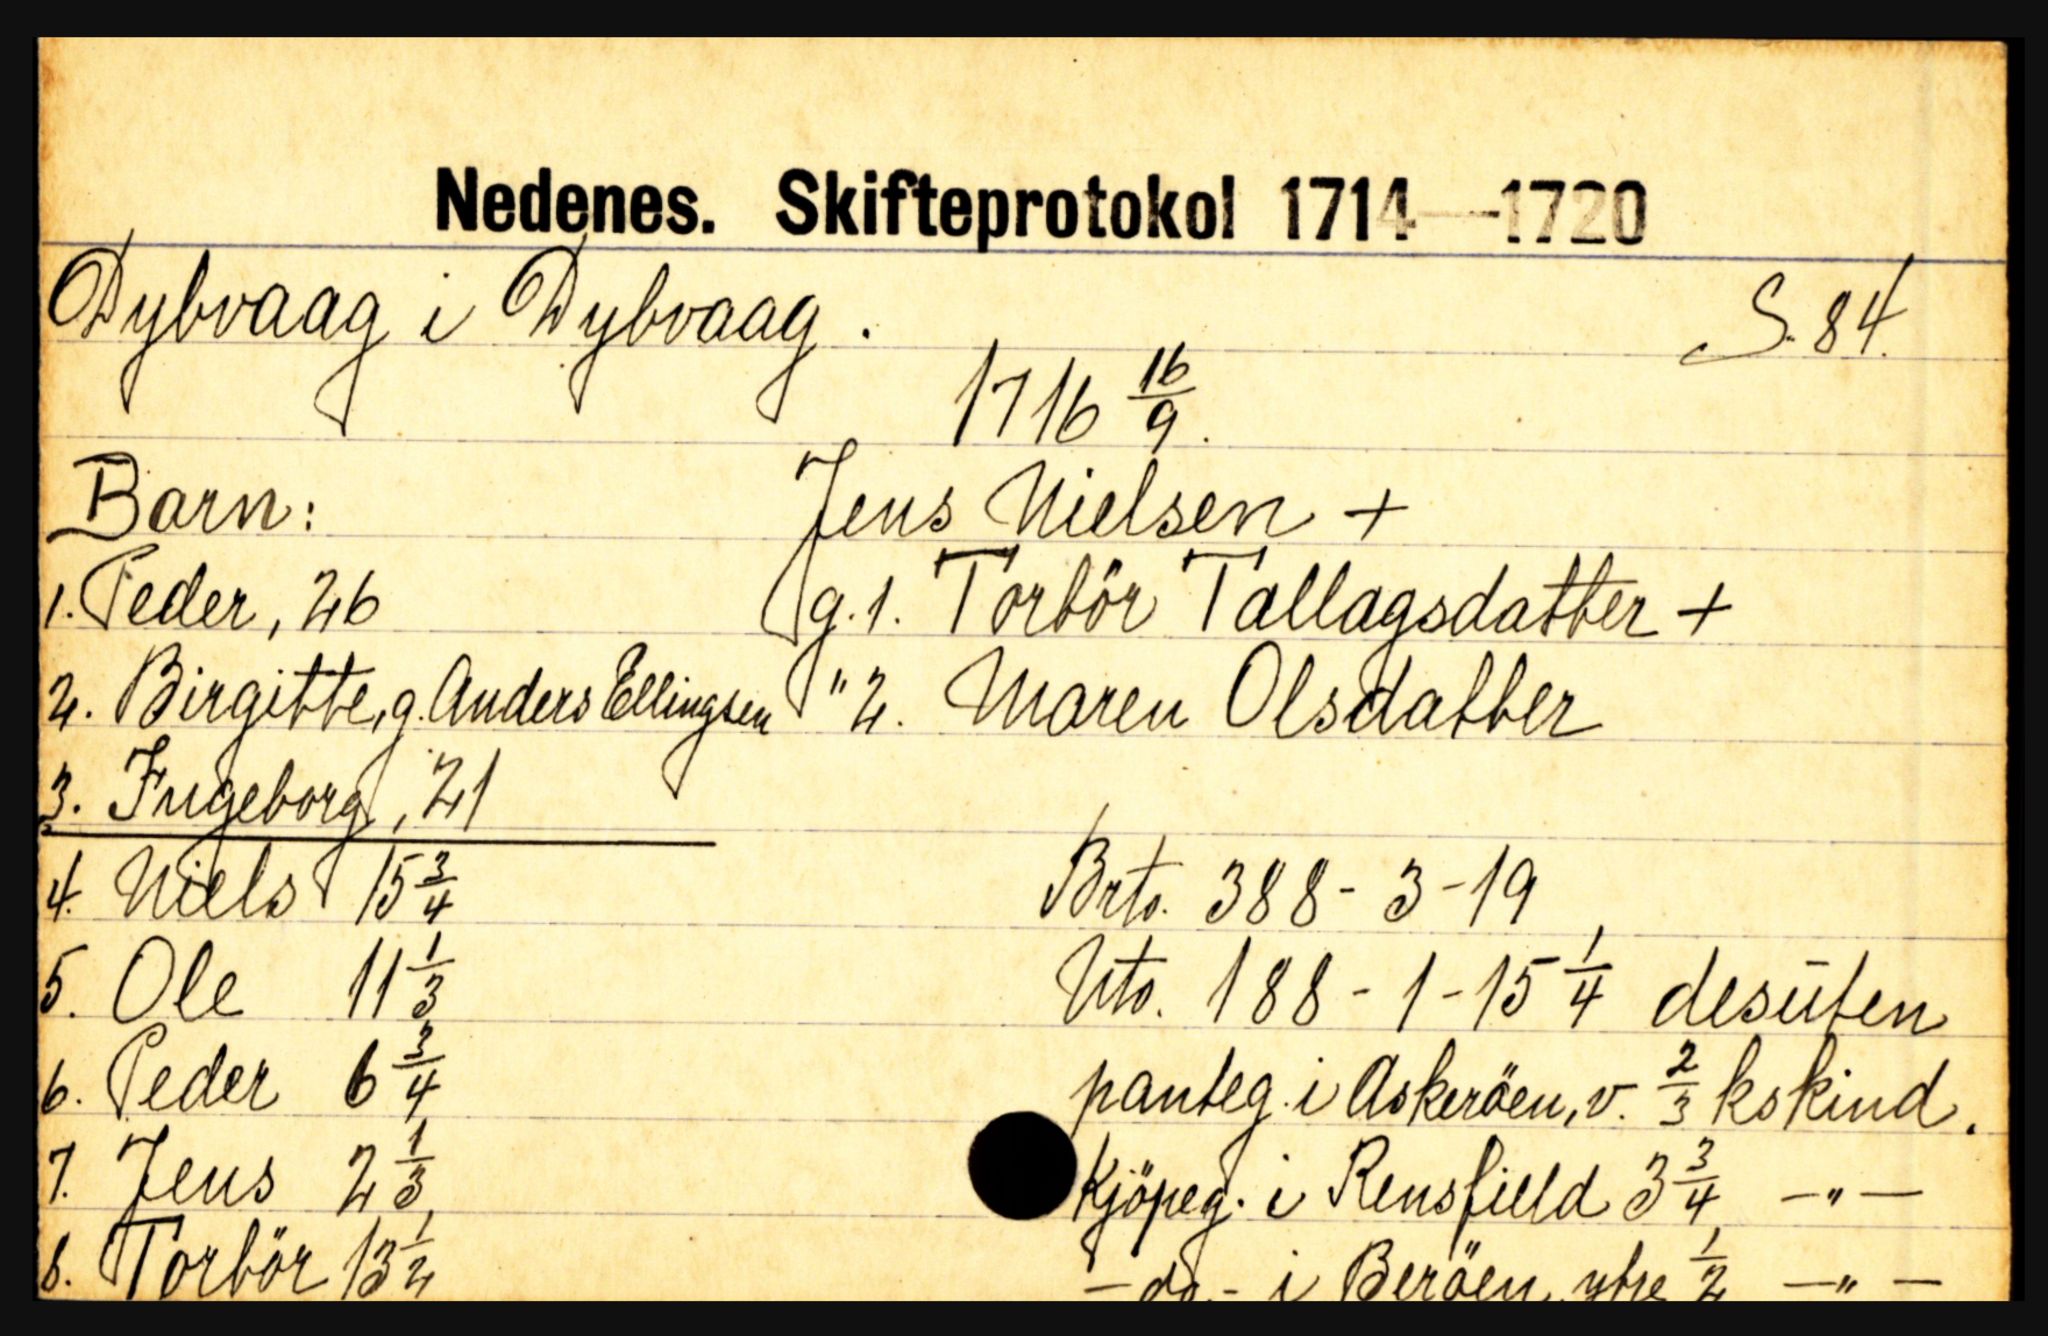 Nedenes. Skifteprotokol 1714—1720
Dybvaag i Dybvaag. S. 84.
1716 16/9.
Barn: Jens Nielsen +
1. Peder, 26 g. 1. Torbör Tallagsdatter +
2. Birgitte, g. Anders Ellingsen " 2. Maren Olsdatter
3. Ingeborg, 21
4. Niels 15 3/4 Brto. 388 - 3 - 19
5. Ole 11 1/3 Nto. 188 - 1 - 15 1/4 desūten
6. Peder 6 3/4 panteg. i Askeröen, v. 2/3 kskind.
7. Jens 2 1/3 Kjöpeg. i Rensfield 3 3/4 —"—
8. Torbör 13 1/2 — do. - i Beröen, ytre 1/2 —"—